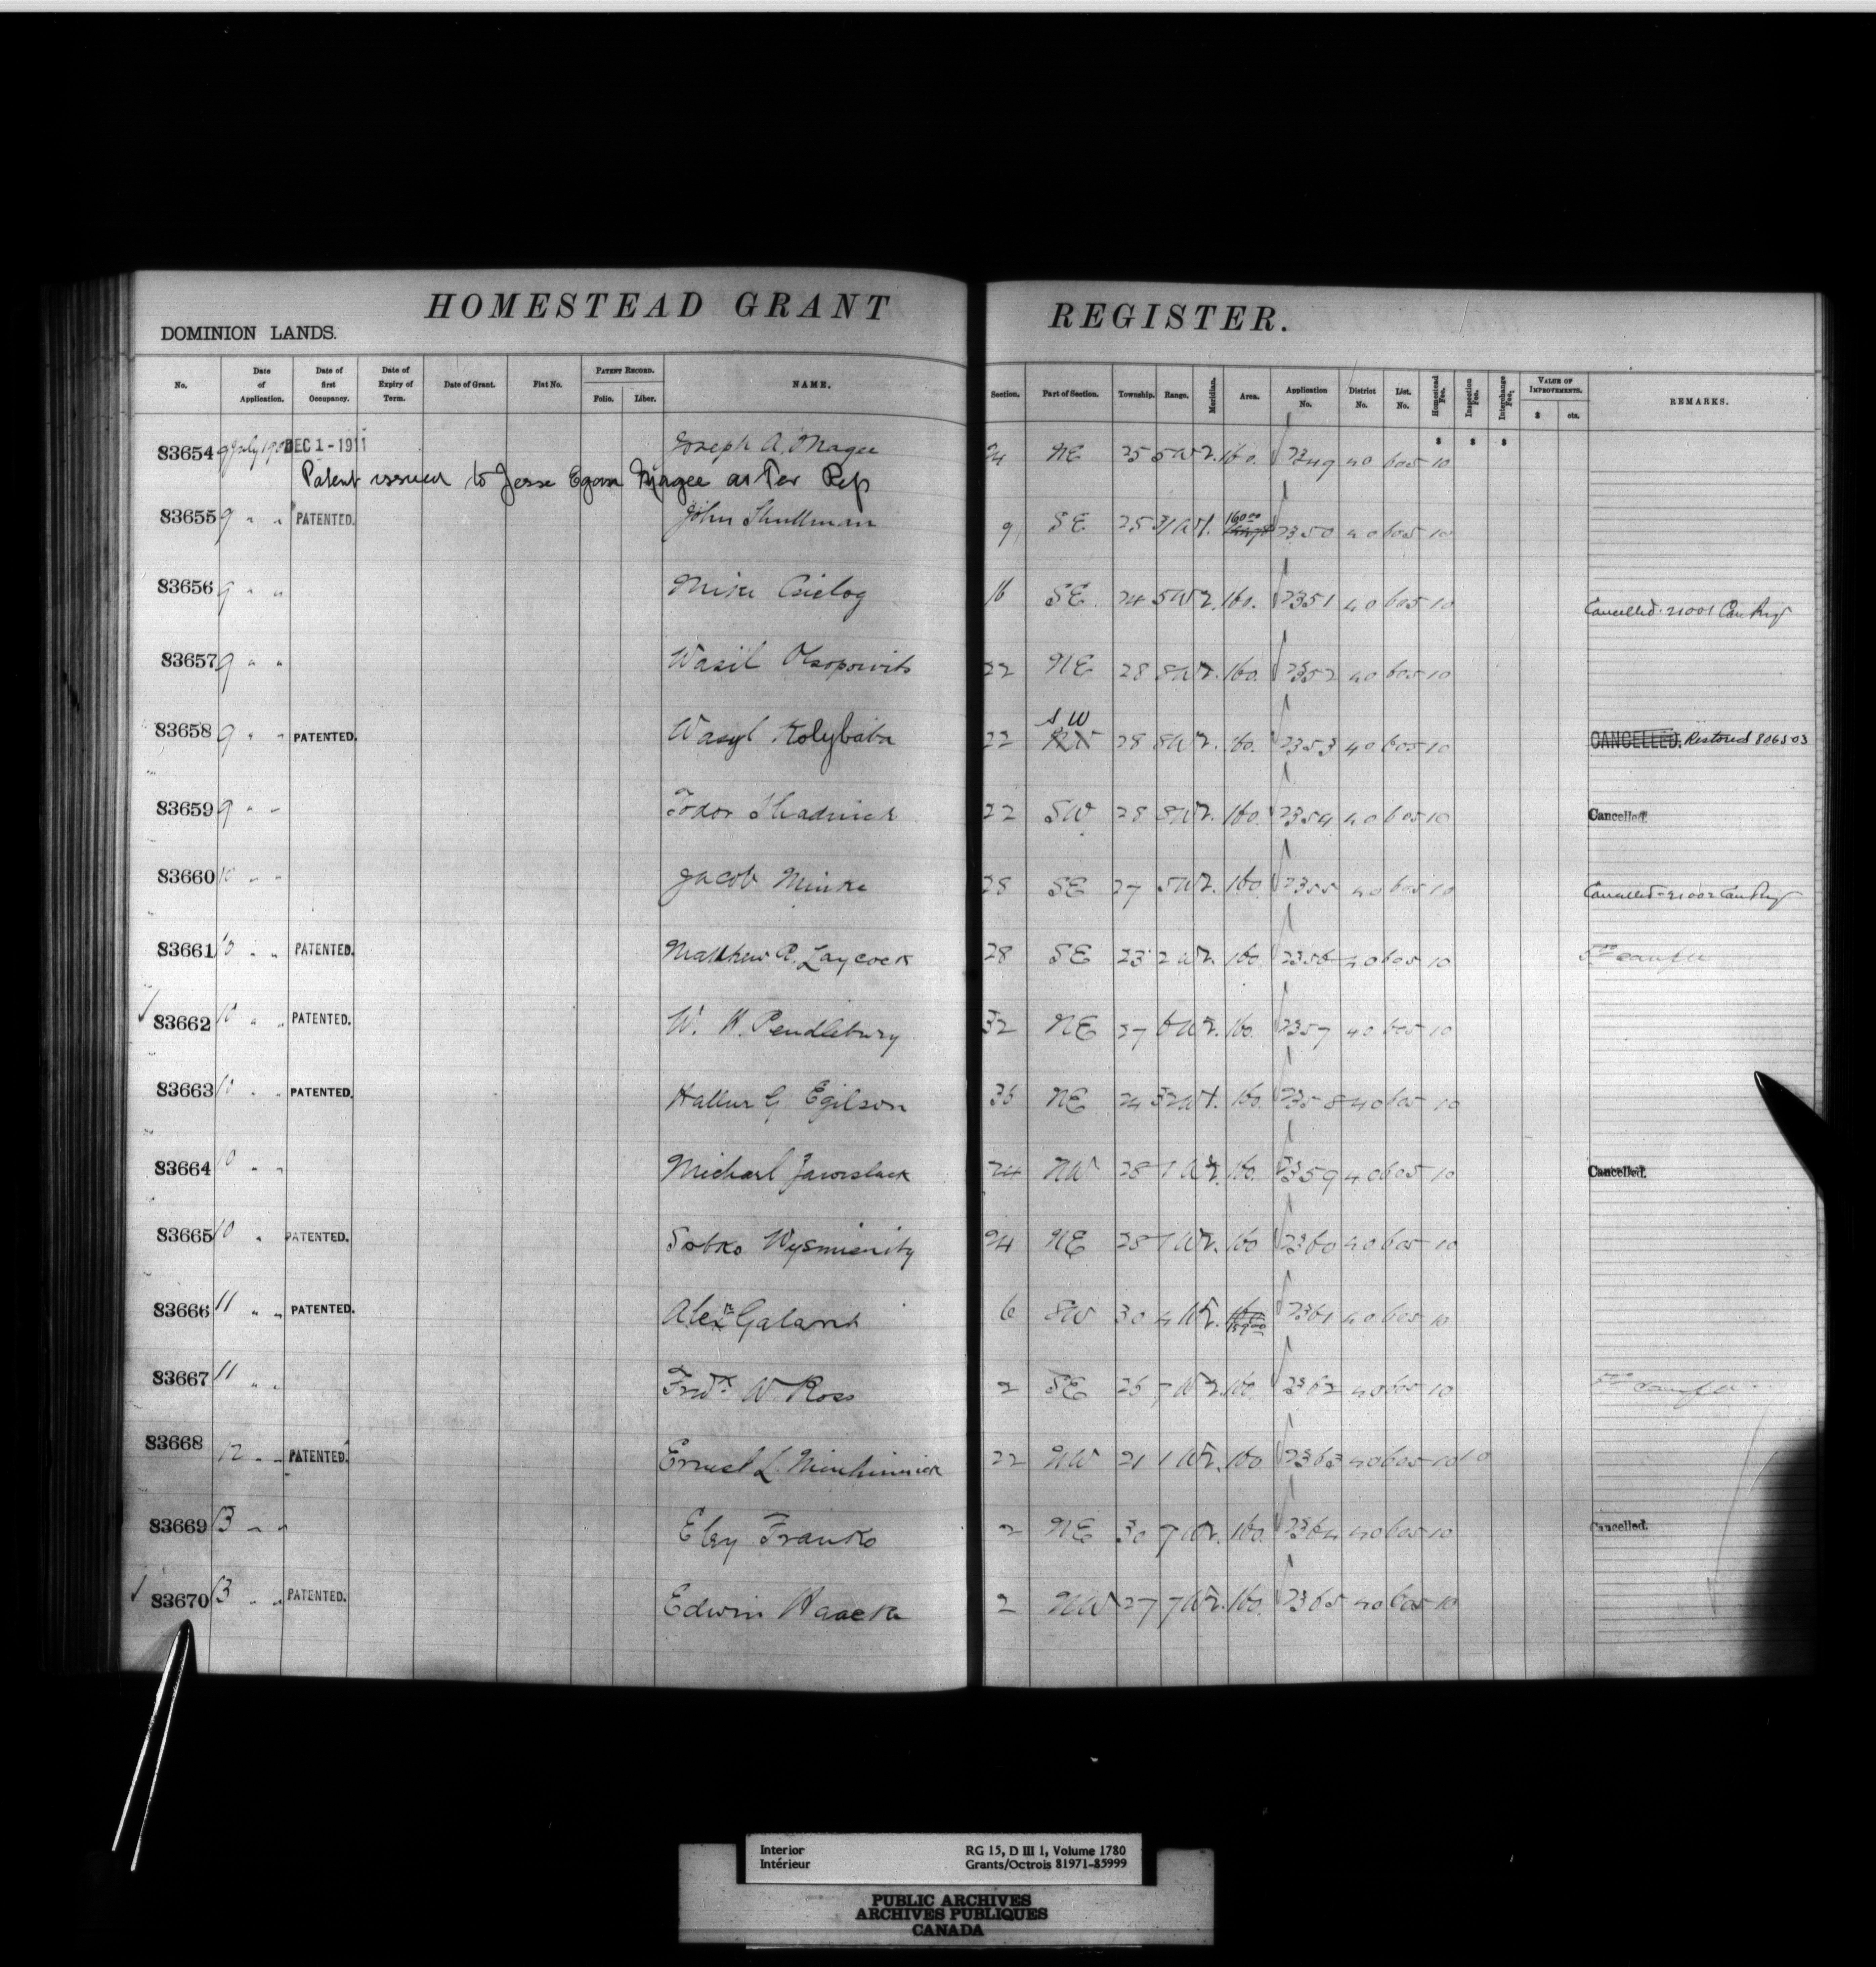 HOMESTEAD GRANT REGISTER.
DOMINION LANDS.
No. Date of Application. Date of first Occupancy. Date of Expiry of Term. Date of Grant. Fiat No. PATENT RECORD. Folio. Liber. NAME. Section. Part of Section. Township. Range. Meridian. Area. Application No. District No. List. No. Homestead Fee. Inspection Fee. Interchange Fee. VALUE OF IMPROVEMENTS. $ cts. REMARKS.
$ $ $
83654 9 July DEC 1-1911 Joseph A. Magee 24 NE 25 5 W 2. 160. 2349 40 605 10
Patent issued to Jesse Egan Magee as Per Rep
83655 9 " " PATENTED. John Shullman 9 SE 25 31 W 1. 160.00 2350 40 605 10
83656 9 " " Mike Cielog 16 SE. 24 5 W 2. 160. 2351 40 605 10 Cancelled. 21001 Can Reg
83657 9 " " Wasil 22 NE 28 8 W 2. 160. 2352 40 605 10
83658 9 " " PATENTED. Wasyl Kolybaba 22 SW NW 28 8 W 2. 160. 2353 40 605 10 CANCELLED. Restored 806503
83659 9 " " Fodor Shadnick 22 SW 28 8 W 2. 160. 2354 40 605 10 Cancelled.
83660 10 " " Jacob Minke 28 SE 27 5 W 2. 160 2355 40 605 10 Cancelled 21002 Can Reg
83661 10 " " PATENTED. Matthew R. Laycock 28 SE 23 2 W 2. 160. 2356 40 605 10
83662 10 " " PATENTED. W. H. Pendlebury 32 NE 27 6 W 2. 160. 2357 40 605 10
83663 10 " " PATENTED. Hallur G Egilson 36 NE 24 32 W 1. 160. 2358 40 605 10
83664 10 " " Michael Jaworslack 24 NW 28 7 W 2. 160. 2359 40 605 10 Cancelled.
83665 10 " PATENTED. Sobko 24 NE 28 7 W 2. 160 2360 40 605 10
83666 11 " " PATENTED. Alexr Galant 6 SW 30 4 W 2. 160 159.00 2361 40 605 10
83667 11 " " Fredk W. Ross 2 SE 26 7 W 2. 160. 2362 40 605 10
83668 12 " " PATENTED. Ernest L. Minhinnick 22 NW 21 1 W 2. 160 2363 40 605 10 10
83669 13 " " Eley Franko 2 NE 30 7 W 2. 160. 2364 40 605 10 Cancelled.
83670 13 " " PATENTED. Edwin Haacke 2 NW 27 7 W 2. 160. 2365 40 605 10
Interior RG 15, D III 1, Volume 1780
Intérieur Grants/Octrois 81971-85999
PUBLIC ARCHIVES
ARCHIVES PUBLIQUES
CANADA